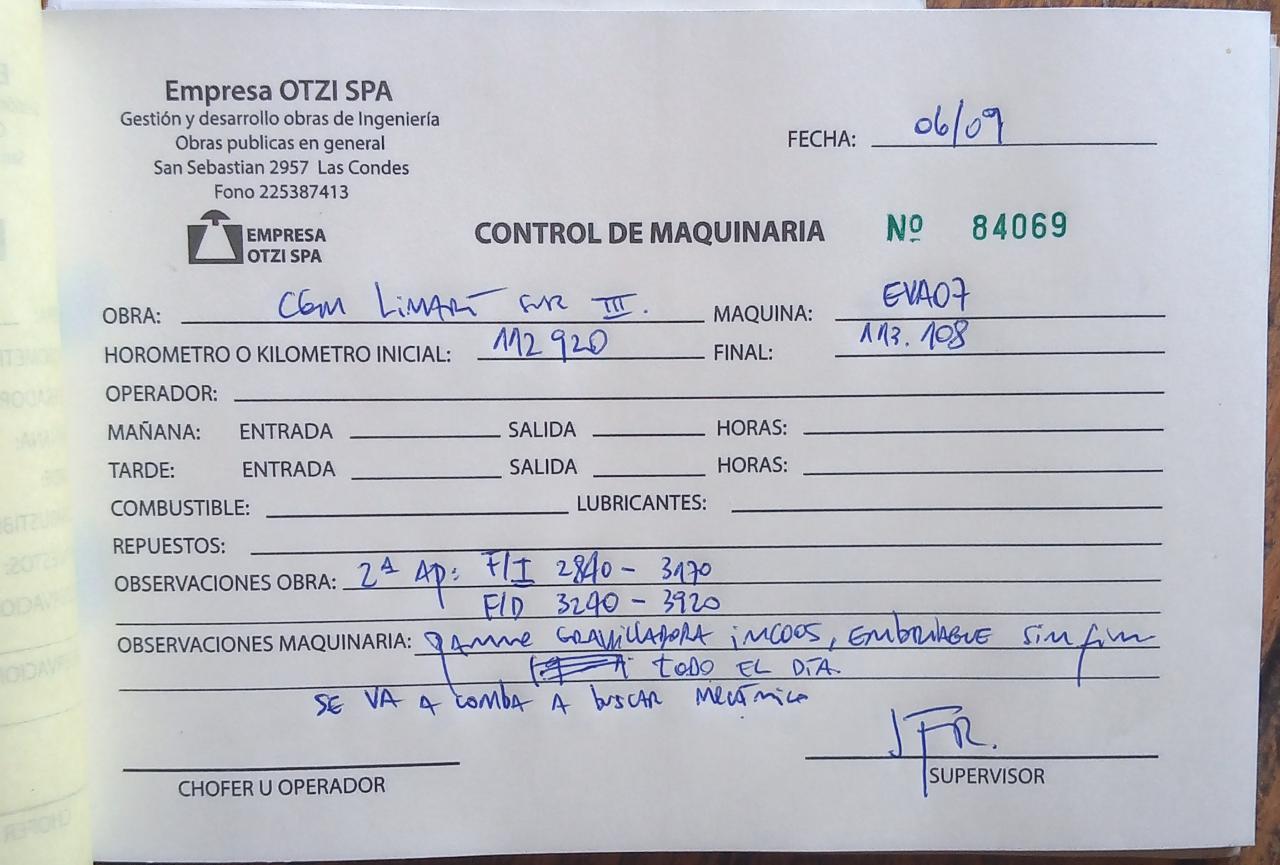 Empresa OTZI SPA
Gestión y desarrollo obras de Ingeniería
Obras publicas en general
San Sebastian 2957 Las Condes
Fono 225387413
FECHA: 06/09
EMPRESA
OTZI SPA
CONTROL DE MAQUINARIA Nº 84069
OBRA: CGM LIMARÍ SUR III. MAQUINA: EVA07
HOROMETRO O KILOMETRO INICIAL: 112920 FINAL: 113.108
OPERADOR:
MAÑANA: ENTRADA SALIDA HORAS:
TARDE: ENTRADA SALIDA HORAS:
COMBUSTIBLE: LUBRICANTES:
REPUESTOS:
OBSERVACIONES OBRA: 2ª AP: F/I 2840 - 3170
F/D 3240 - 3920
OBSERVACIONES MAQUINARIA: PANNE GRAVILLADORA INCOOS, EMBRIAGUE SIN FIN
TODO EL DÍA.
SE VA A COMBA A BUSCAR MECÁNICO
JFR.
CHOFER U OPERADOR
SUPERVISOR